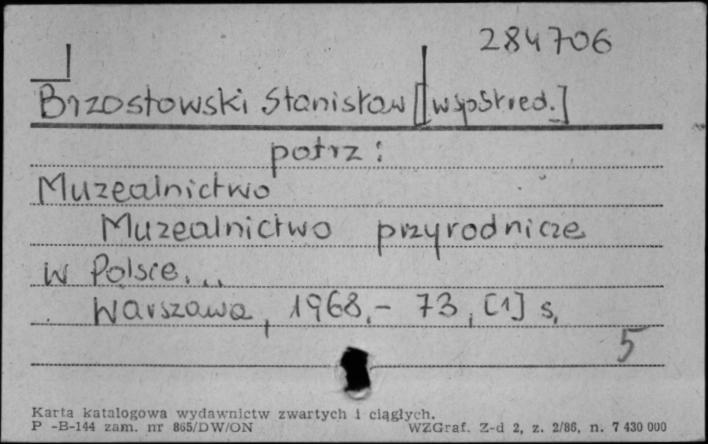 284706
Brzostowski Stanisław [współred.]
potrz:
Muzealnictwo
Muzealnictwo przyrodnicze
w Polsce...
Warszawa, 1968.- 73, [1] s.
5
Karta katalogowa wydawnictw zwartych i ciągłych.
P -B-144 zam. nr 865/DW/ON WZGraf. Z-d 2, z. 2/86, n. 7 430 000